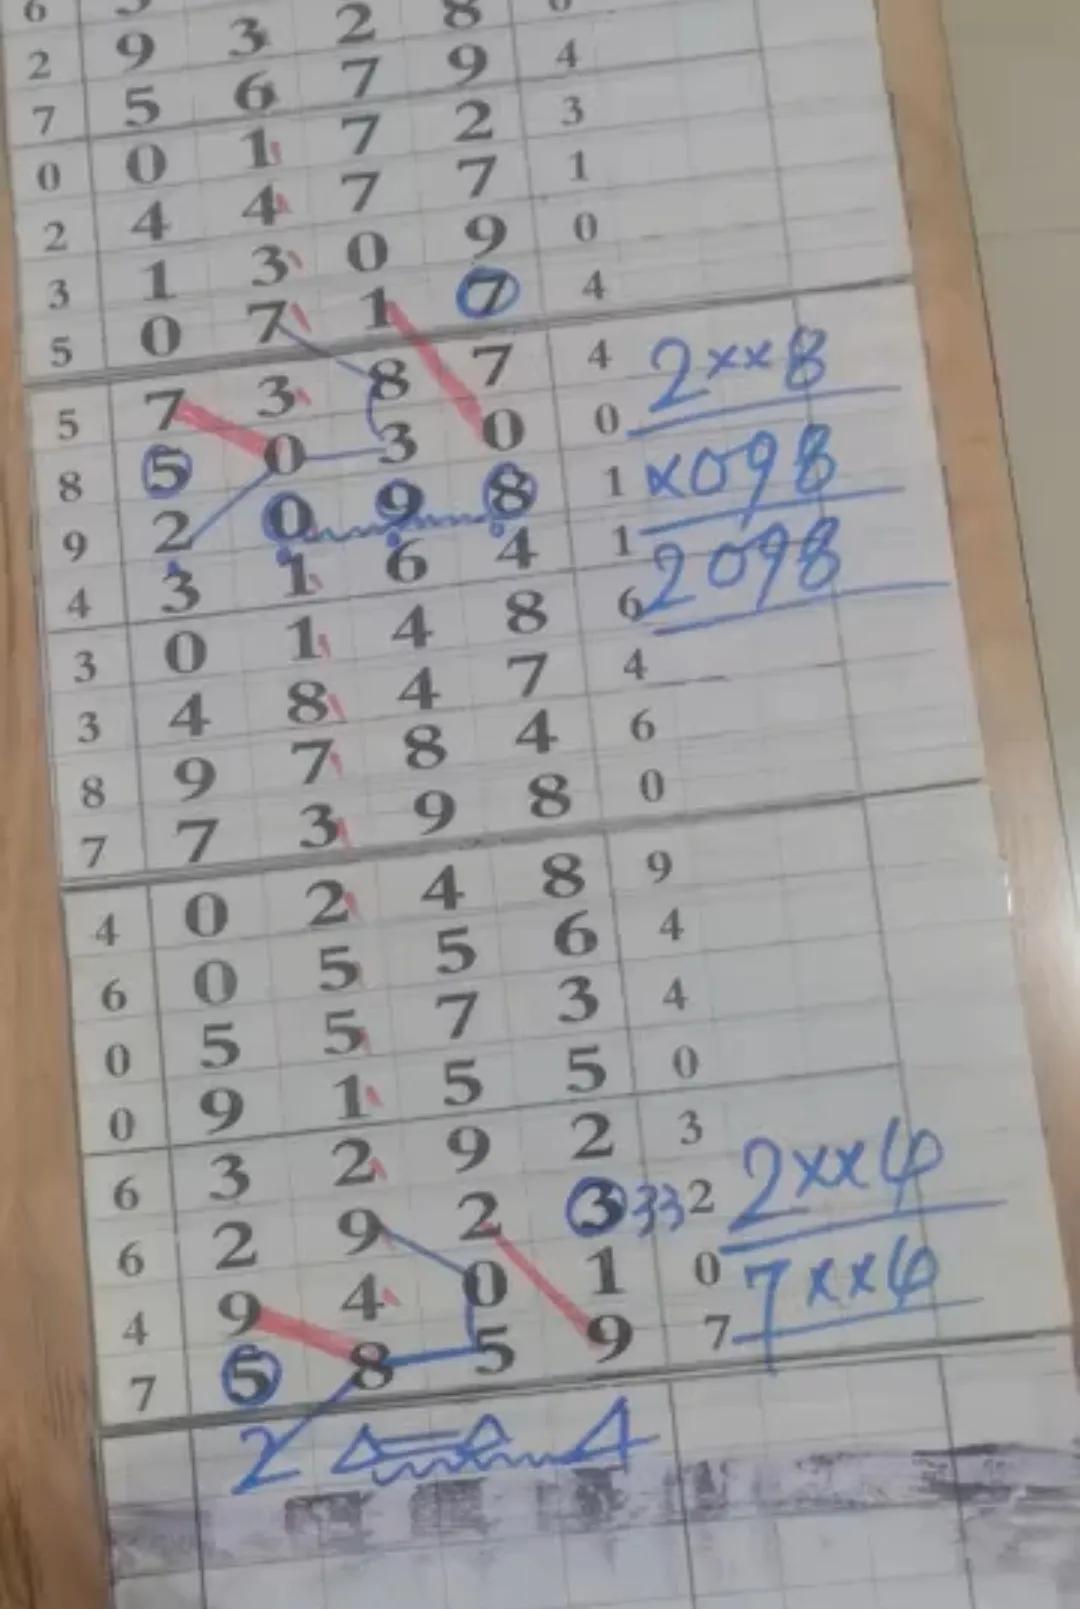 2 9 3 2 8
7 5 6 7 9 4
0 0 1 7 2 3
2 4 4 7 7 1
3 1 3 0 9 0
5 0 7 1 7 4
5 7 3 8 7 4 2××8
8 5 0 3 0 0
9 2 0 9 8 1 ×098
4 3 1 6 4 1 2098
3 0 1 4 8 6
3 4 8 4 7 4
8 9 7 8 4 6
7 7 3 9 8 0
4 0 2 4 8 9
6 0 5 5 6 4
0 5 5 7 3 4
0 9 1 5 5 0
6 3 2 9 2 3
6 2 9 2 3 33 2 2××6
4 9 4 0 1 0 7××6
7 5 8 5 9 7
2 4